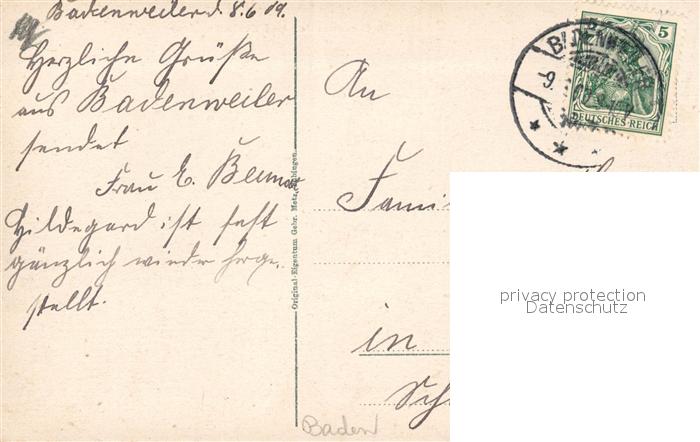 Badenweiler d. 8.6.09.
Herzliche Grüße
aus Badenweiler
sendet
Frau E.
Hildegard ist fast
gänzlich wieder herge-
stellt.
Original-Eigentum Gebr. Metz, Tübingen.
An
Famil
in
Sch
Baden
BADENWEILER
-9.
5
DEUTSCHES REICH
privacy protection
Datenschutz